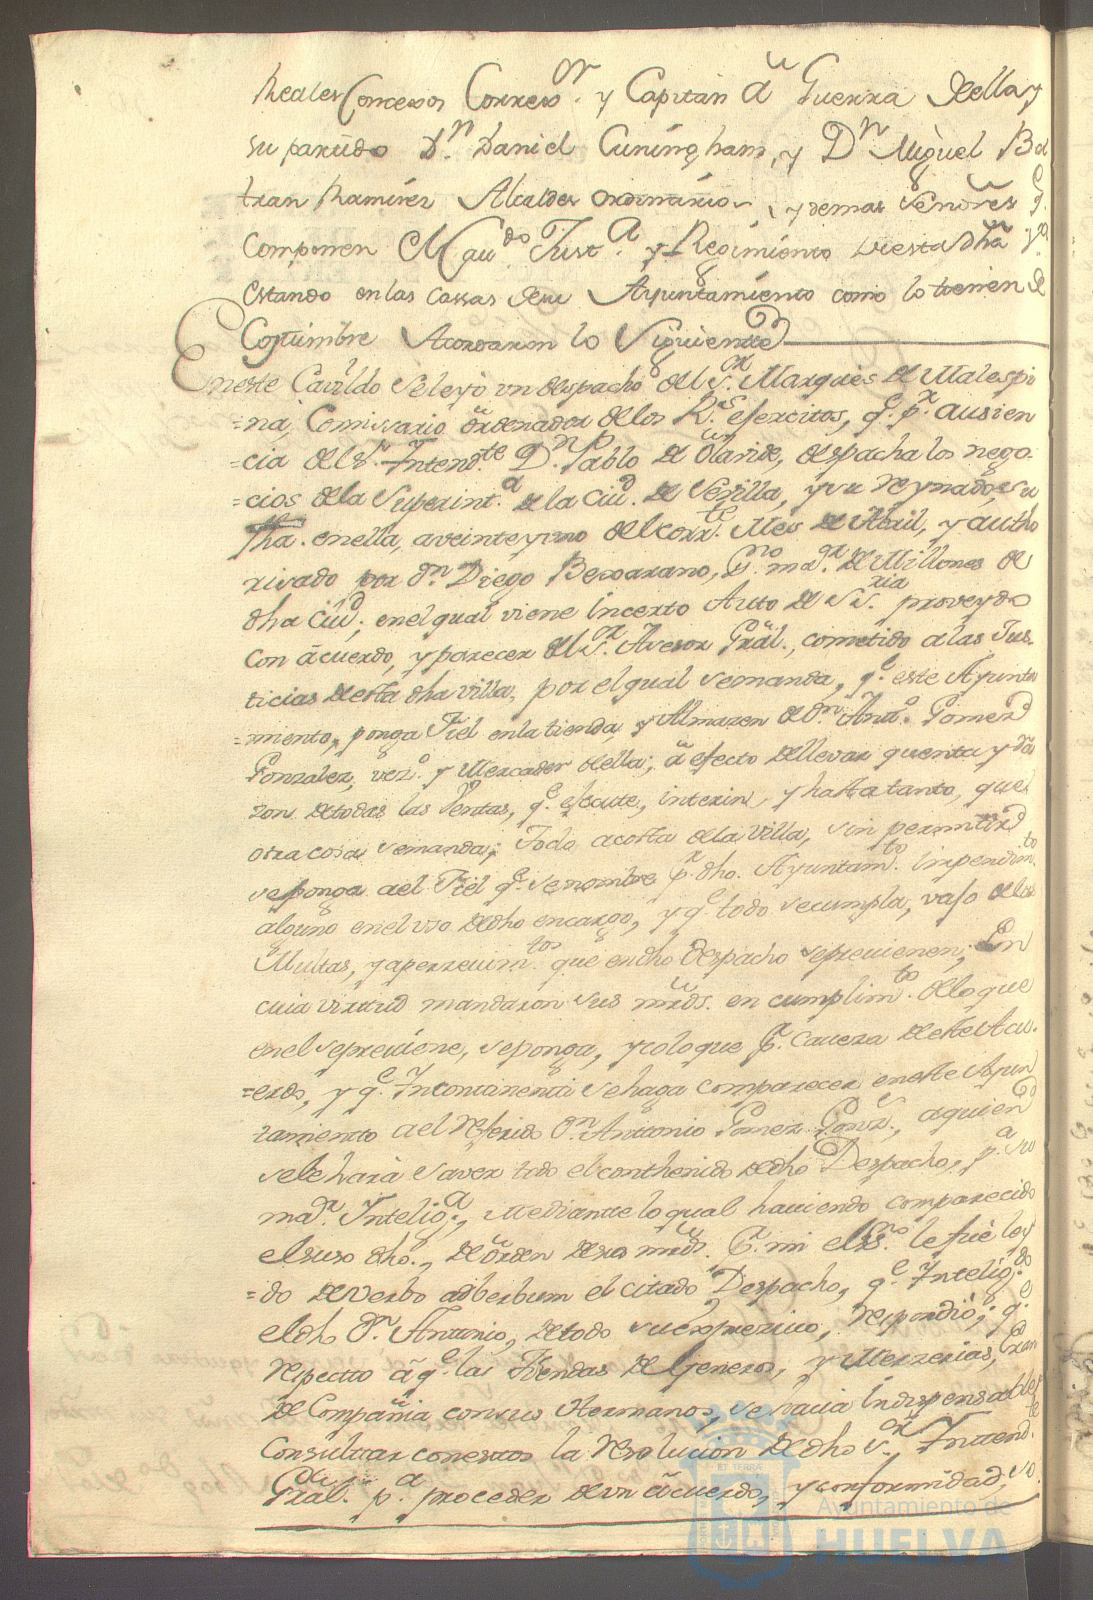 Reales Consexos Correxor. y Capitan á Guerra de ella y
su partido Dn. Daniel Cuningham, y Dn. Miguel Bel
tran Ramirez Alcaldes ordinarios, y demas Señores q.
componen el Caudo. Justa. y Regimiento de esta dha va.
estando en las cassas de su Ayuntamiento como lo tienen de
costumbre Acordaron lo Siguiente
En este Cavildo se leyò un despacho del Sor. Marques de Malespi
=na, Comissario ôrdenador de los Rs. exercitos, qe. pr. ausien
=cia del Sr. Intendte. Dn. Pablo de Olavide, despacha los nego-
=cios de la Superinta. de la Ciud. de Sevilla, y su Reynado, su
fha. en ella, a veinte y uno del corrte. Mes de Abril, y autho
rizado por dn. Diego Bexarano, Esno. mor. de Millones de
dha Ciud; en el qual viene incerto Auto de SSria. proveydo
con ácuerdo, y parecer del Sr. Asesor Gral., cometido a las Jus-
ticias de esta dha villa, por el qual se manda, qe. este Ayunta
=miento, ponga Fiel en la tienda y Almazen de dn. Anto. Gomez
Gonzalez, vezo. y Mercader de ella; á efecto de llevar quenta y Ra
zon de todas las Ventas, qe. execute, interin, y hasta tanto, que
otra cosa se manda; Todo a costa de la Villa, sin permitir
se ponga a el Fiel qe. se nombre pr. dho. Ayuntamto. impedimto.
alguno en el uso de dho encargo, y qe. todo se cumpla, vajo de las
Multas, y aperzevimtos. que en dho Despacho se previenen; En
cuia virtud mandaron sus mrds. en cumplimto. de lo que
en el se previene, se ponga, y coloque pr. caveza de este Acu-
=erdo, y qe. Incontinenti se haga comparecer en este Ayun
tamiento a el Referido Dn. Antonio Gomez Gonz., a quien
se le harà saver todo el conthenido de dho Despacho, pa. su
mar. Inteliga., Mediante lo qual haviendo comparecido
el suso dho., de ôrden de sus mrds. pr. mi el Esno. le fuè ley
=do de Verbo adberbum el citado Despacho, qe. Inteligdo.
el dho Dn. Antonio, de todo su expresivo, Respondiò; qe.
Respecto â qe. las Tiendas de Generos, y Merzerias, eran
de Compañia con sus Hermanos, se hacia indispensable
consultar con estos la Resolucion de dho Sor. Intendte.
Gral. pa. proceder de un ácuerdo, y conformidad, so
Ayuntamiento de
HUELVA